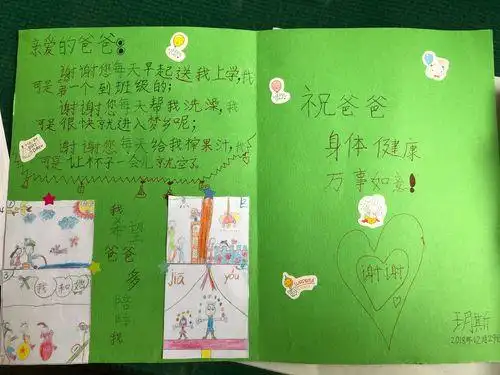 亲爱的爸爸：
谢谢您每天早起送我上学，我
可是第一个到班级的；
谢谢您每天帮我洗澡，我
可是很快就进入梦乡呢；
谢谢您每天给我榨果汁，我
可是让杯子一会儿就空了。
我
希望
爸爸
多
陪陪
我
我和
jiā
yóu
祝爸爸
身体健康
万事如意！
谢谢
玥斯
2018年12月29日